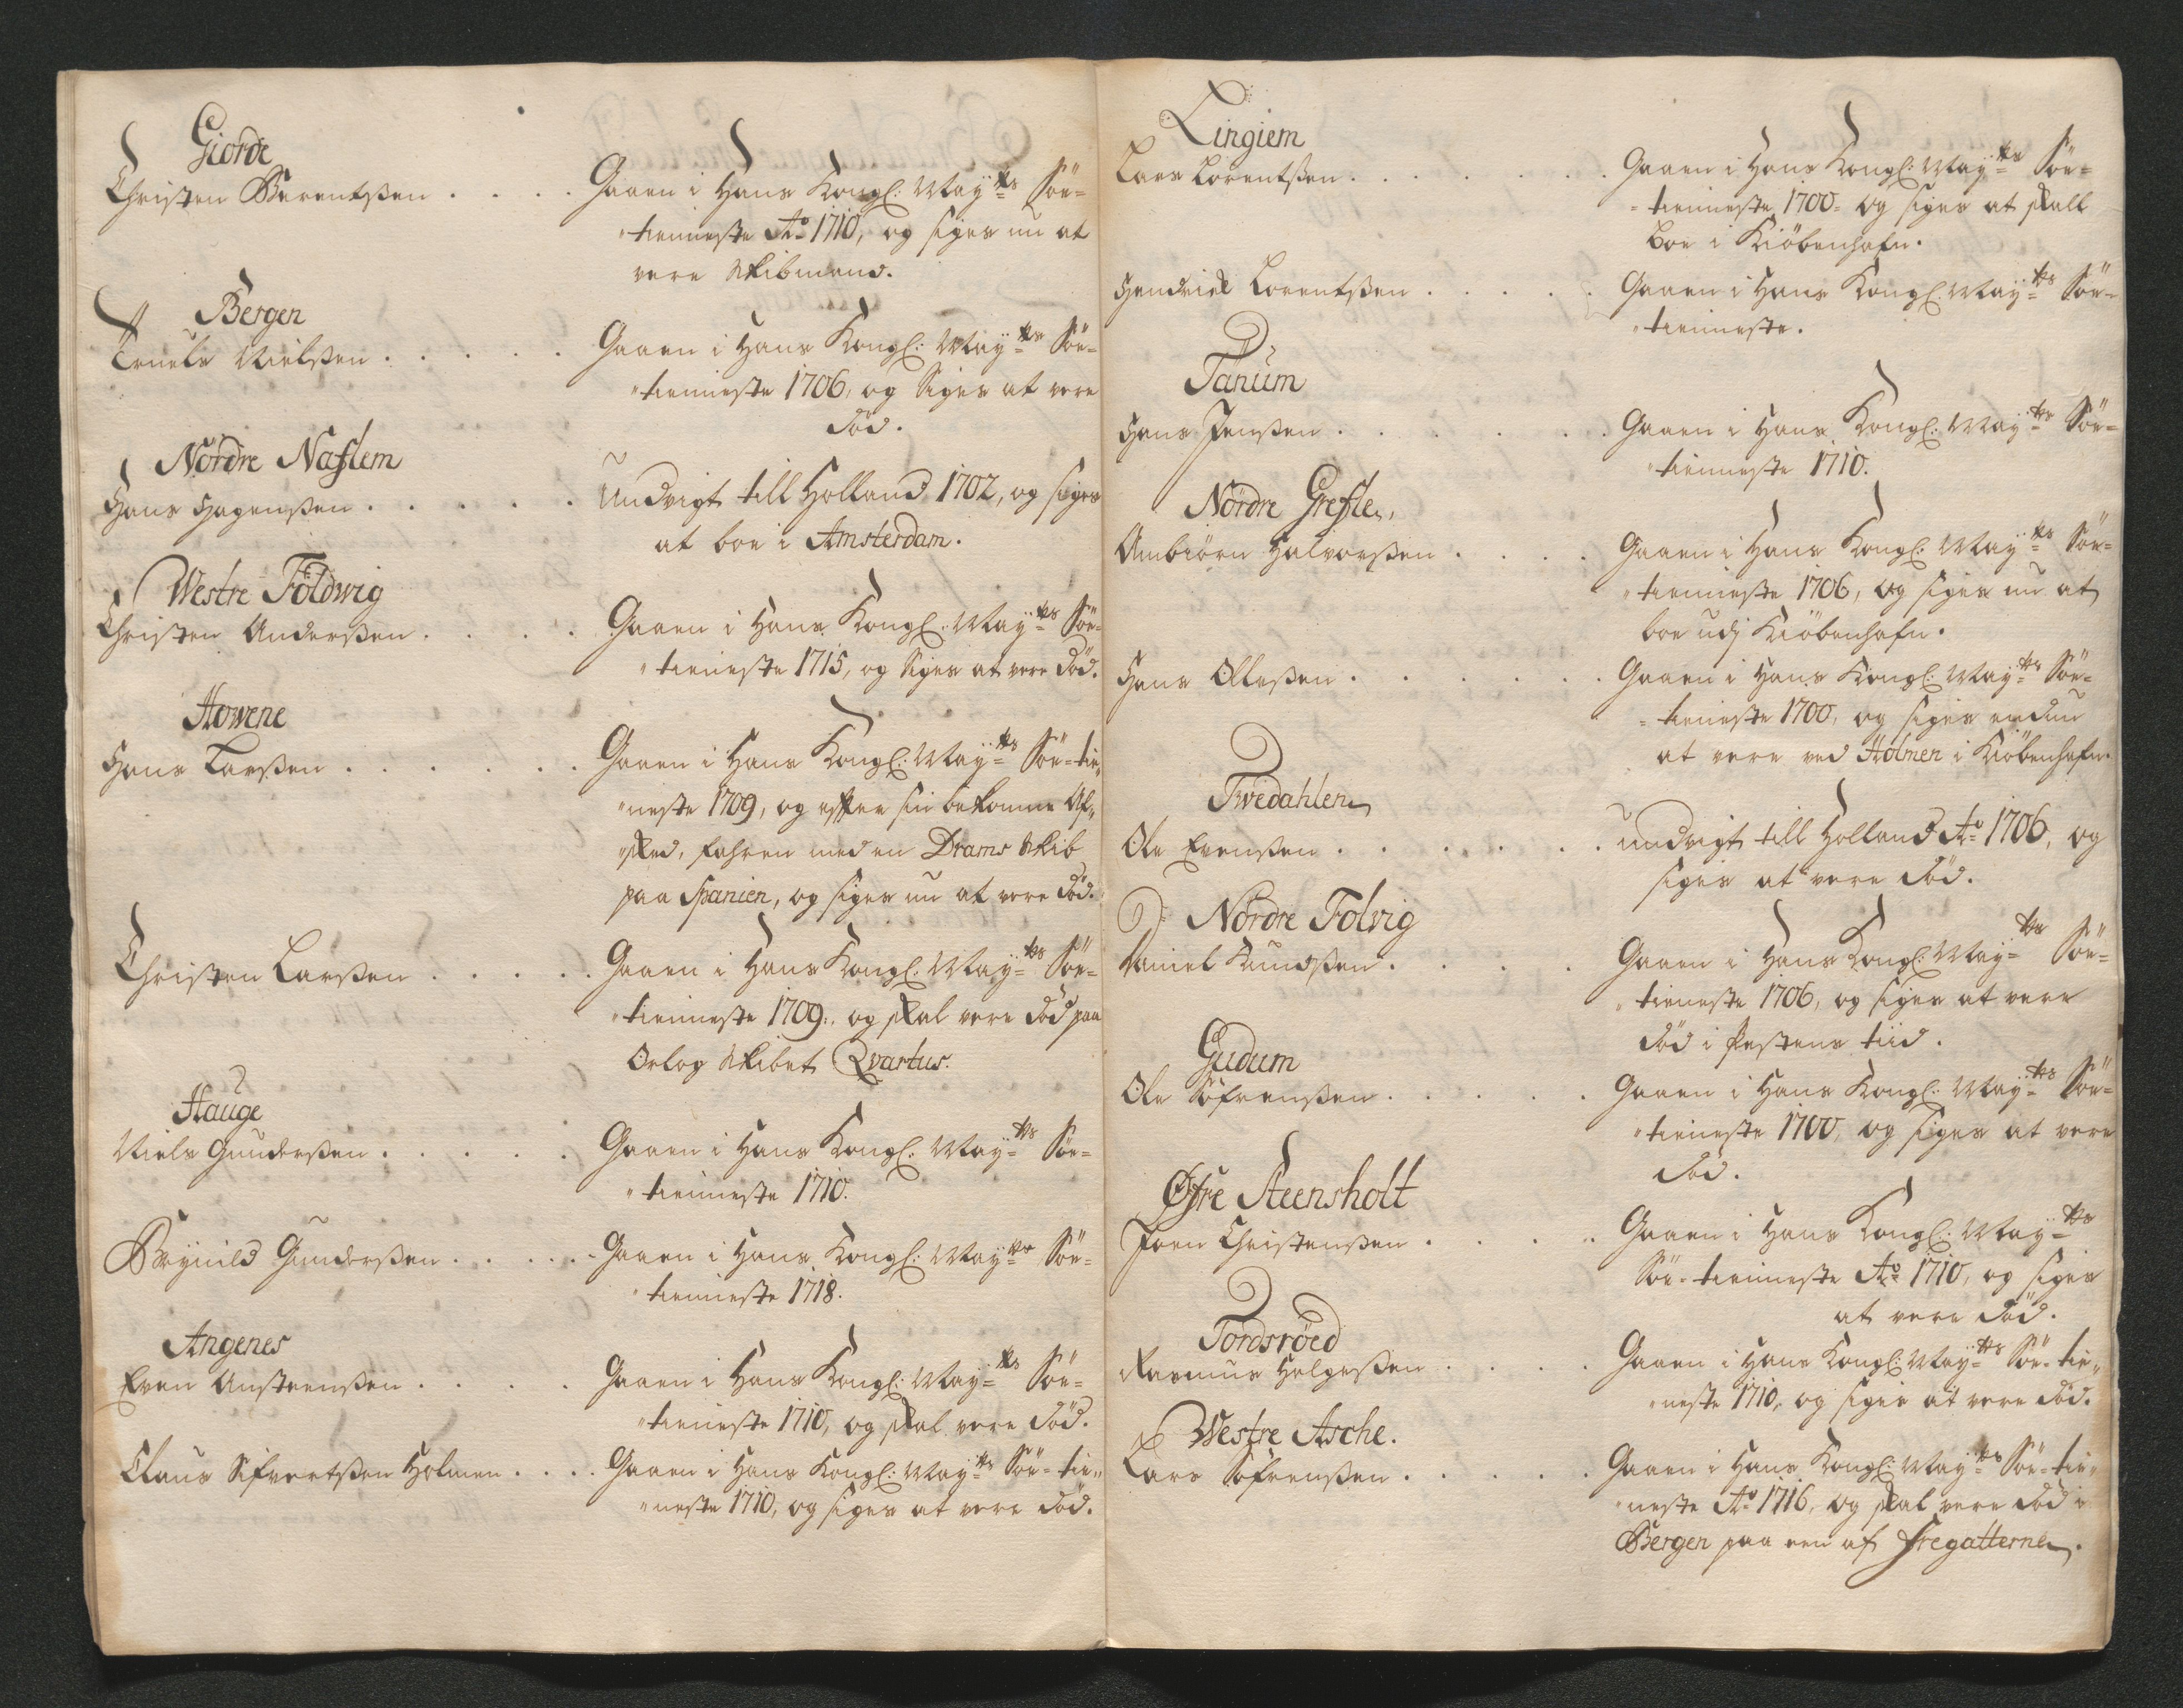 Giorde
Christen Berentßen . . . . Gaaen i Hans Kongl: May:ts Søe=
"tienneste Ao 1710, og siges nu at
vere Skibmand.
Bergen
Truels Nielßen . . . . . Gaaen i Hans Kongl: May:ts Søe=
"tienneste 1706, og Siges at vere
død.
Nordre Nafslem
Hans Hagenßen . . . . . Undvigt till Holland 1702, og siges
at boe i Amsterdam.
Westre Földwig
Christen Anderßen . . . . Gaaen i Hans Kongl: May:ts Søe=
"tieneste 1715, og Siges at vere død.
Howene
Hans Larßen . . . . . . Gaaen i Hans Kongl: May:ts Søe=tie"
"neste 1709, og efter sin bekomne Af"
"sked, fahren med en Drams Skib
paa Spanien, og siges nu at vere død.
Christen Larßen . . . . . Gaaen i Hans Kongl: May:ts Søe=
"tienneste 1709, og skal vere død paa
Orlog Skibet Qvartus.
Hauge
Niels Gunderßen . . . . . Gaaen i Hans Kongl: May:ts Søe=
"tienneste 1710.
Brynild Gunderßen . . . . . Gaaen i Hans Kongl: May:ts Søe=
"tienneste 1718.
Angenes
Even Austenßen . . . . . Gaaen i Hans Kongl: May:ts Søe=
"tieneste 1710, og skal vere død.
Claus Sifvertßen Holmen . . . . Gaaen i Hans Kongl: May:ts Søe=tie"
"neste 1710, og siges at vere død.
Lingiem
Lars Lorentßen . . . . . . Gaaen i Hans Kongl: May:ts Søe=
=tienneste 1700= og siges at skall
boe i Kiöbenhafn.
Hendrick Lorentßen . . . . . Gaaen i Hans Kongl: May:ts Søe=
"tienneste.
Tanum
Hans Jenßen . . . . . . Gaaen i Hans Kongl: May:ts Søe=
"tienneste 1710.
Nordre Grefsle
Ambiörn Halvorßen . . . . Gaaen i Hans Kongl: May:ts Søe=
"tienneste 1706, og siges nu at
boe udj Kiöbenhafn.
Hans Olleßen . . . . . . Gaaen i Hans Kongl: May:ts Søe=
=tieneste 1700, og siges endnu
at vere ved Holmen i Kiöbenhafn.
Tvedahlen
Ole Evenßen . . . . . . undvigt till Holland Ao 1706, og
siges at vere død.
Nordre Folvig
Daniel Knudßen . . . . Gaaen i Hans Kongl: May:ts Søe=
"tieneste 1706, og siges at vere
død i Pestens tiid.
Gudum
Ole Söfrenßen . . . . . Gaaen i Hans Kongl: May:ts Søe=
"tieneste 1700, og siges at vere
død.
Øfre Steensholt
Joen Christenßen . . . . Gaaen i Hans Kongl: May:ts
Søe=tienneste Ao 1710, og siges
at vere död.
Tordsröed
Rasmus Helgeßen . . . . Gaaen i Hans Kongl: May:ts Søe=tie"
"neste 1710, og siges at vere död.
Westre Asche.
Lars Söfrenßen . . . . . Gaaen i Hans Kongl: May:ts Søe=tie"
"neste Ao 1716, og skal vere död i
Bergen paa een af Fregatterne.